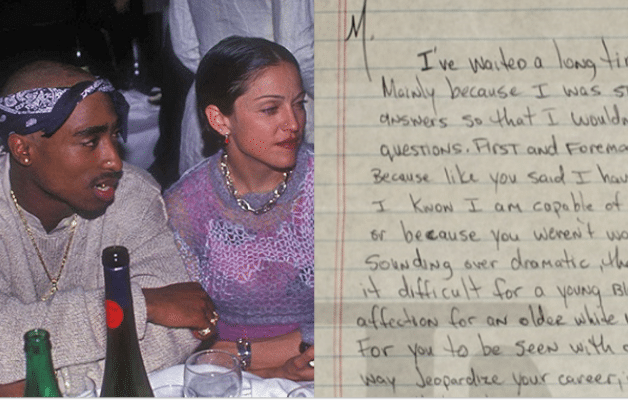 M.
I've waited a long
Mainly because I was
answers so that I
questions. First and
Because like you said I
I know I am capable of
or because you weren't
Sounding over dramatic,
it difficult for a young
affection for an older white
For you to be seen with
way Jeopardize your career,